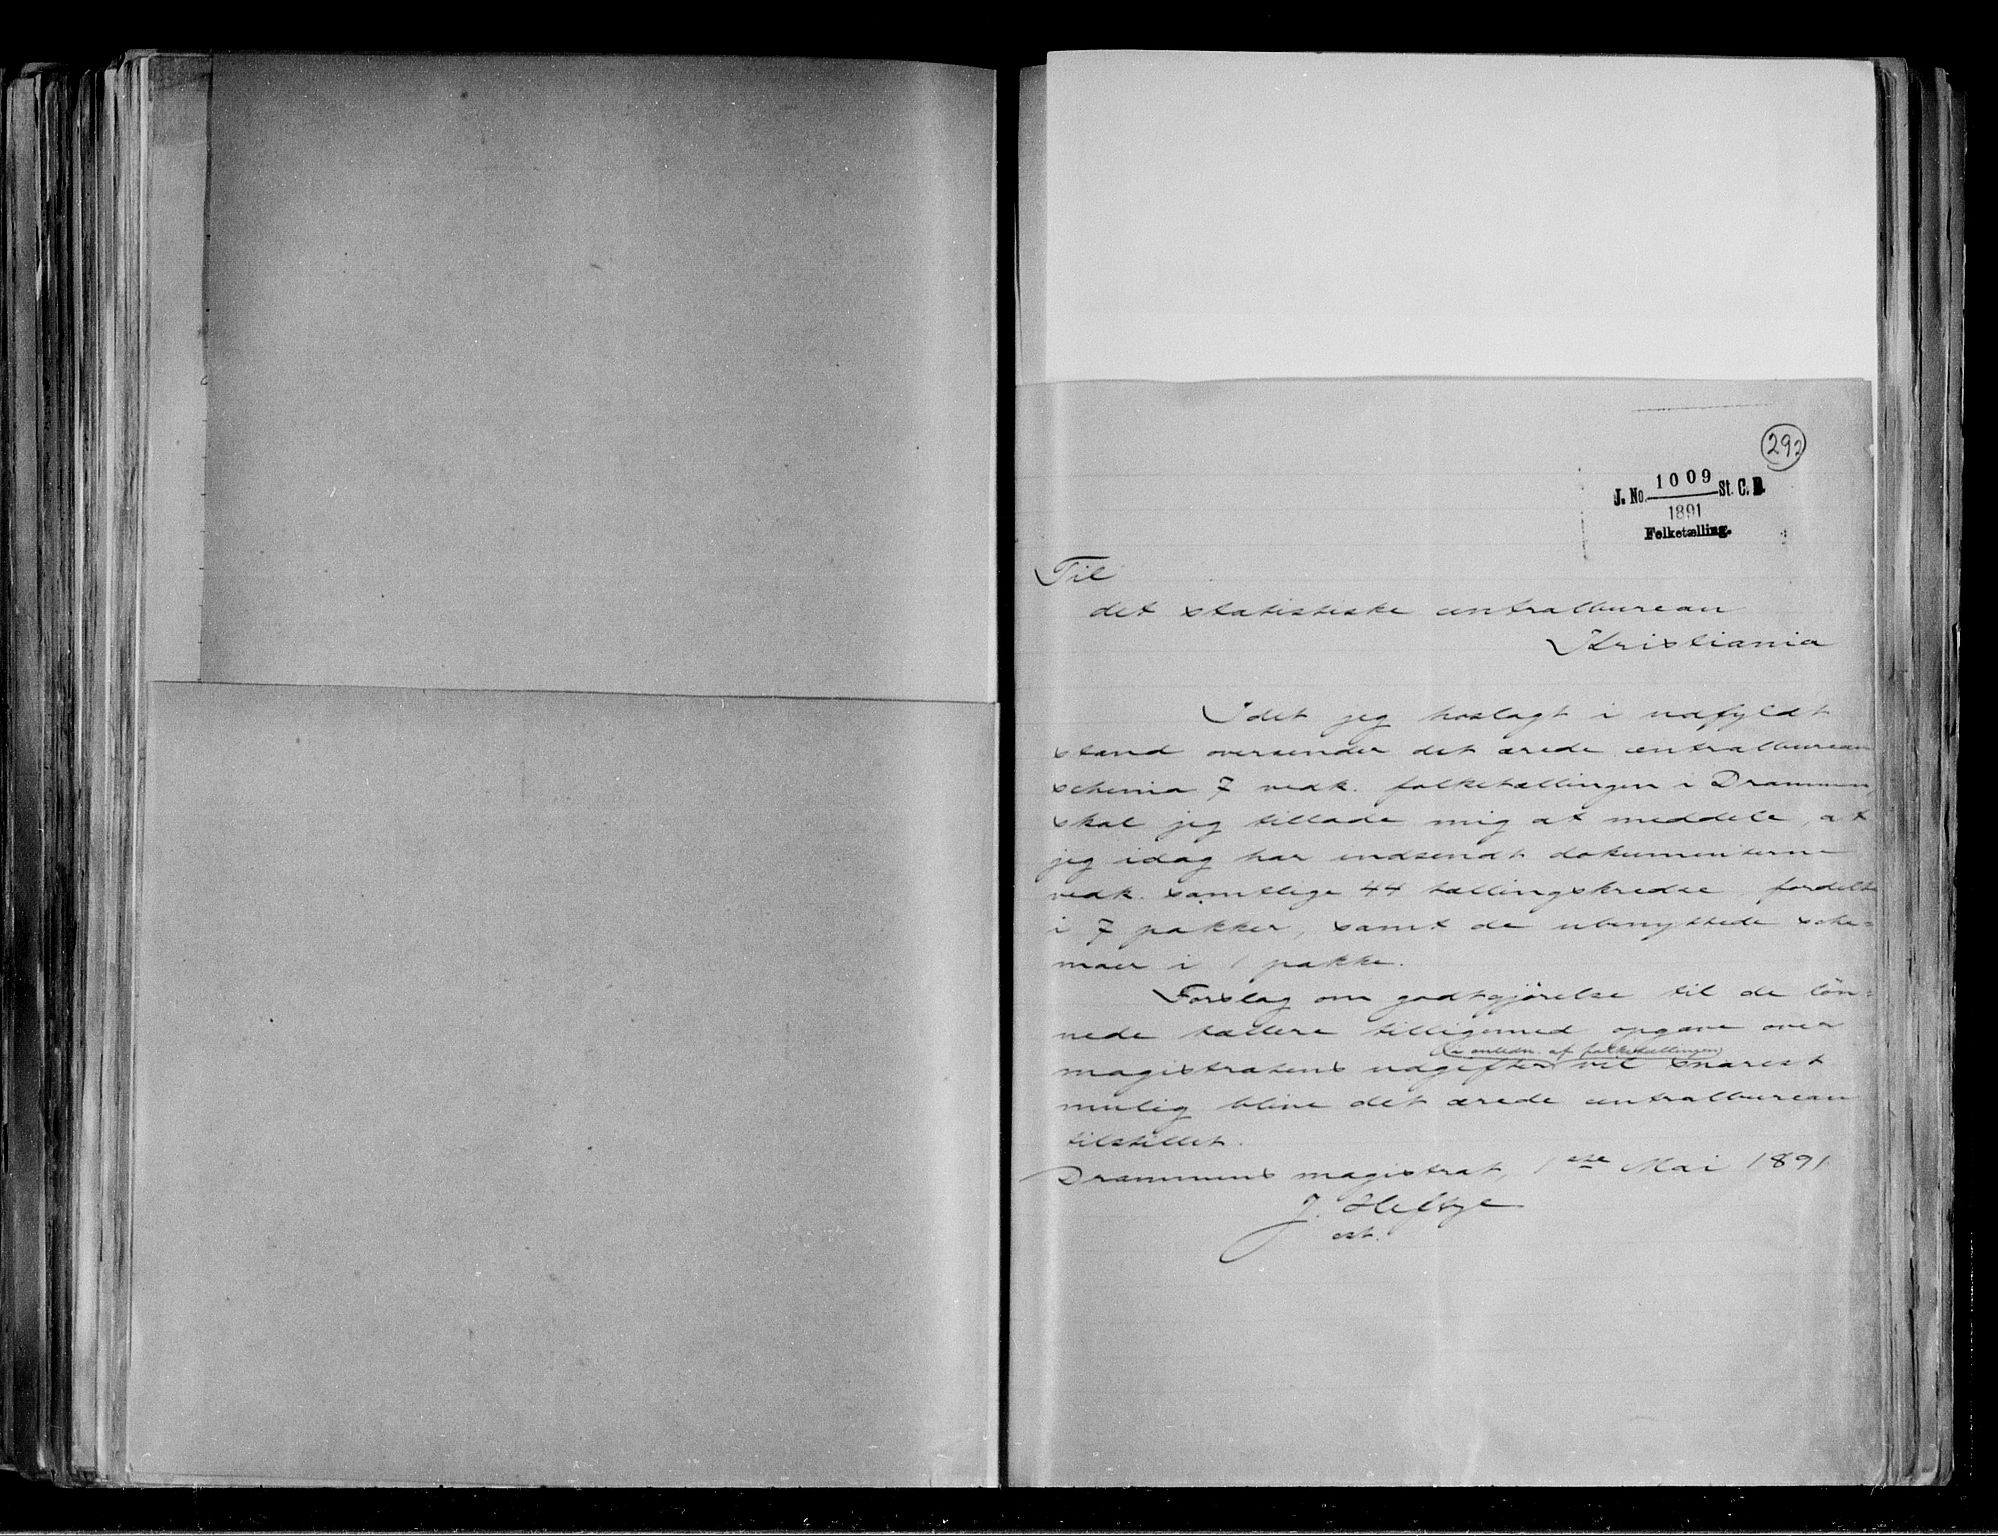 292
J. No. 1009 St. C. B.
1891
Folketælling.
Til
det statistiske centralbureau
Kristiania
Idet jeg hoslagt i udfyldt
stand oversender det ærede centralbureau
schema 7 vedk. folketællingen i Drammen
skal jeg tillade mig at meddele, at
jeg idag har indsendt dokumenterne
vedk. samtlige 44 tællingskredse fordelte
i 7 pakker, samt de ubenyttede sche=
maer i 1 pakke.
Forslag om godtgjørelse til de løn=
nede tællere tilligemed opgave over
(i anledn. af folketællingen)
magistratens udgifter vil snarest
mulig blive det ærede centralbureau
tilstillet.
Drammens magistrat, 1ste Mai 1891
J. Heftye
cst.